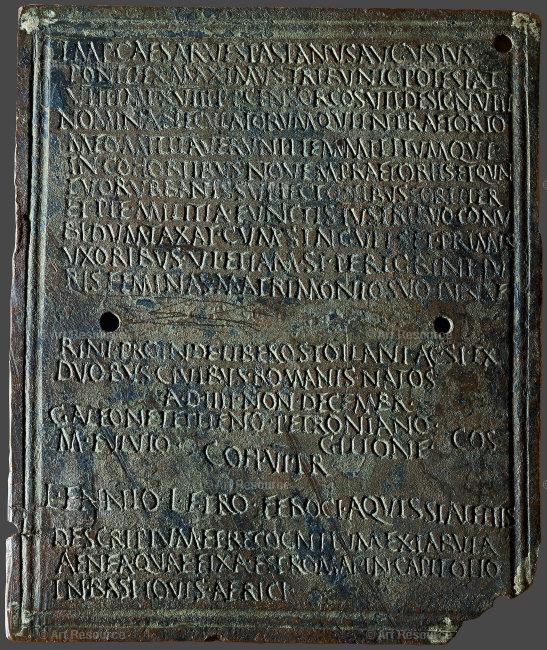 IMP CAESAR VESPASIANVS AVGVSTVS
PONTIFEX MAXIMVS TRIBVNIC POTESTAT
VIII IMP XVIII P P CENSOR COS VII DESIGN VIII
NOMINA SPECVLATORVM QVI IN PRAETORIO
MEO MILITAVERVNT ITEM MILITVM QVI
IN COHORTIBVS NOVEM PRAETORIIS ET QVAT
TVOR VRBANIS SVBIECI QVIBVS FORTITER
ET PIE MILITIA FVNCTIS IVS TRIBVO CONV
BI DVMTAXAT CVM SINGVLIS ET PRIMIS
VXORIBVS VT ETIAM SI PEREGRINI IV
RIS FEMINAS MATRIMONIO SVO IVNXE
RINT PROINDE LIBEROS TOLLANT AC SI EX
DVOBVS CIVIBVS ROMANIS NATOS
A D IIII NON DECEMBR
GALEONE TETTIENO PETRONIANO
M FVLVIO GILLONE COS
COH VI PR
L ENNIO L F TRO FEROCI AQVIS STATELLIS
DESCRIPTVM ET RECOGNITVM EX TABVLA
AENEA QVAE FIXA EST ROMAE IN CAPITOLIO
IN BASI IOVIS AFRICI